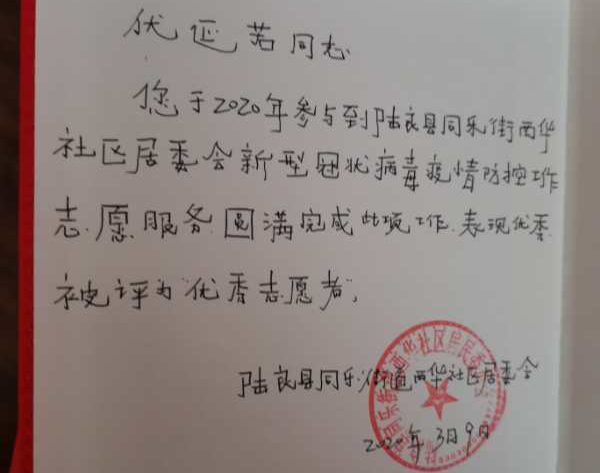 伏征若同志
您于2020年参与到陆良县同乐街西华
社区居委会新型冠状病毒疫情防控工作
志愿服务圆满完成此项工作.表现优秀
被评为“优秀志愿者,
陆良县同乐街道西华社区居委会
2020年3月9日
同乐街道西华社区居民委员会